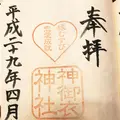 奉拝
神御衣
神社
平成二十九年四月